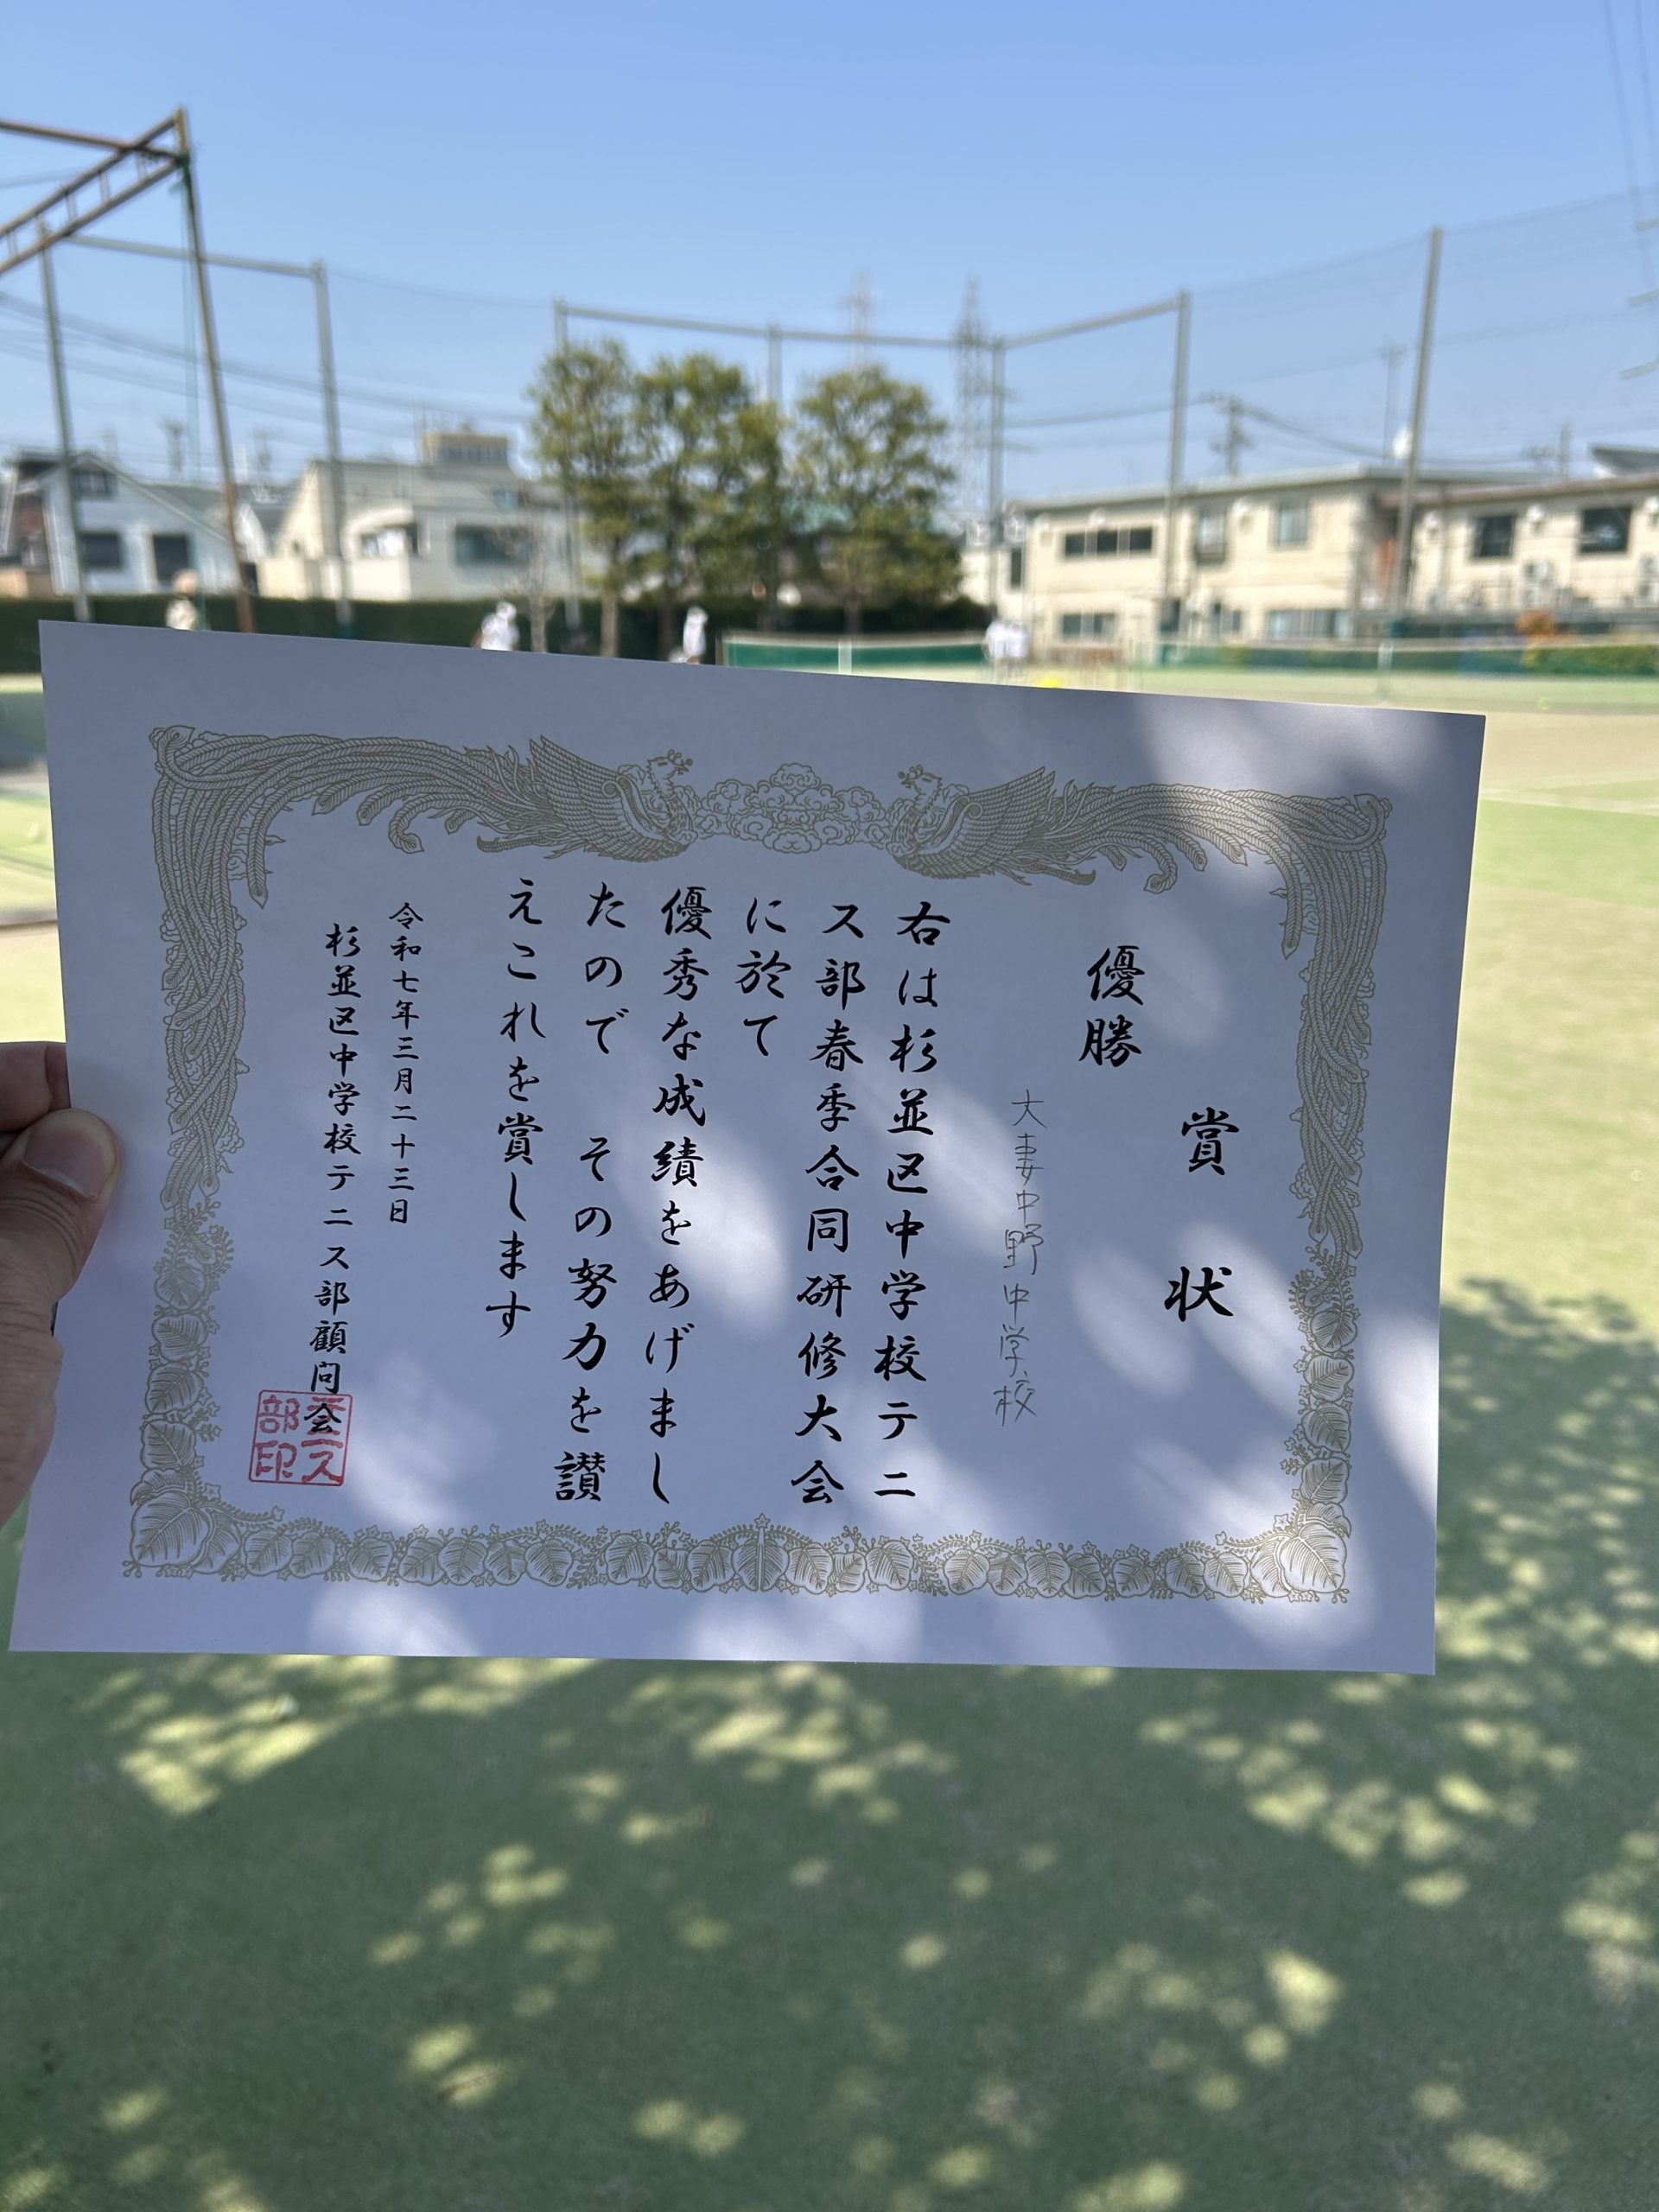 賞状
優勝
大妻中野中学校
右は杉並区中学校テニ
ス部春季合同研修大会
に於て
優秀な成績をあげまし
たので その努力を讃
えこれを賞します
令和七年三月二十三日
杉並区中学校テニス部顧問会
部印